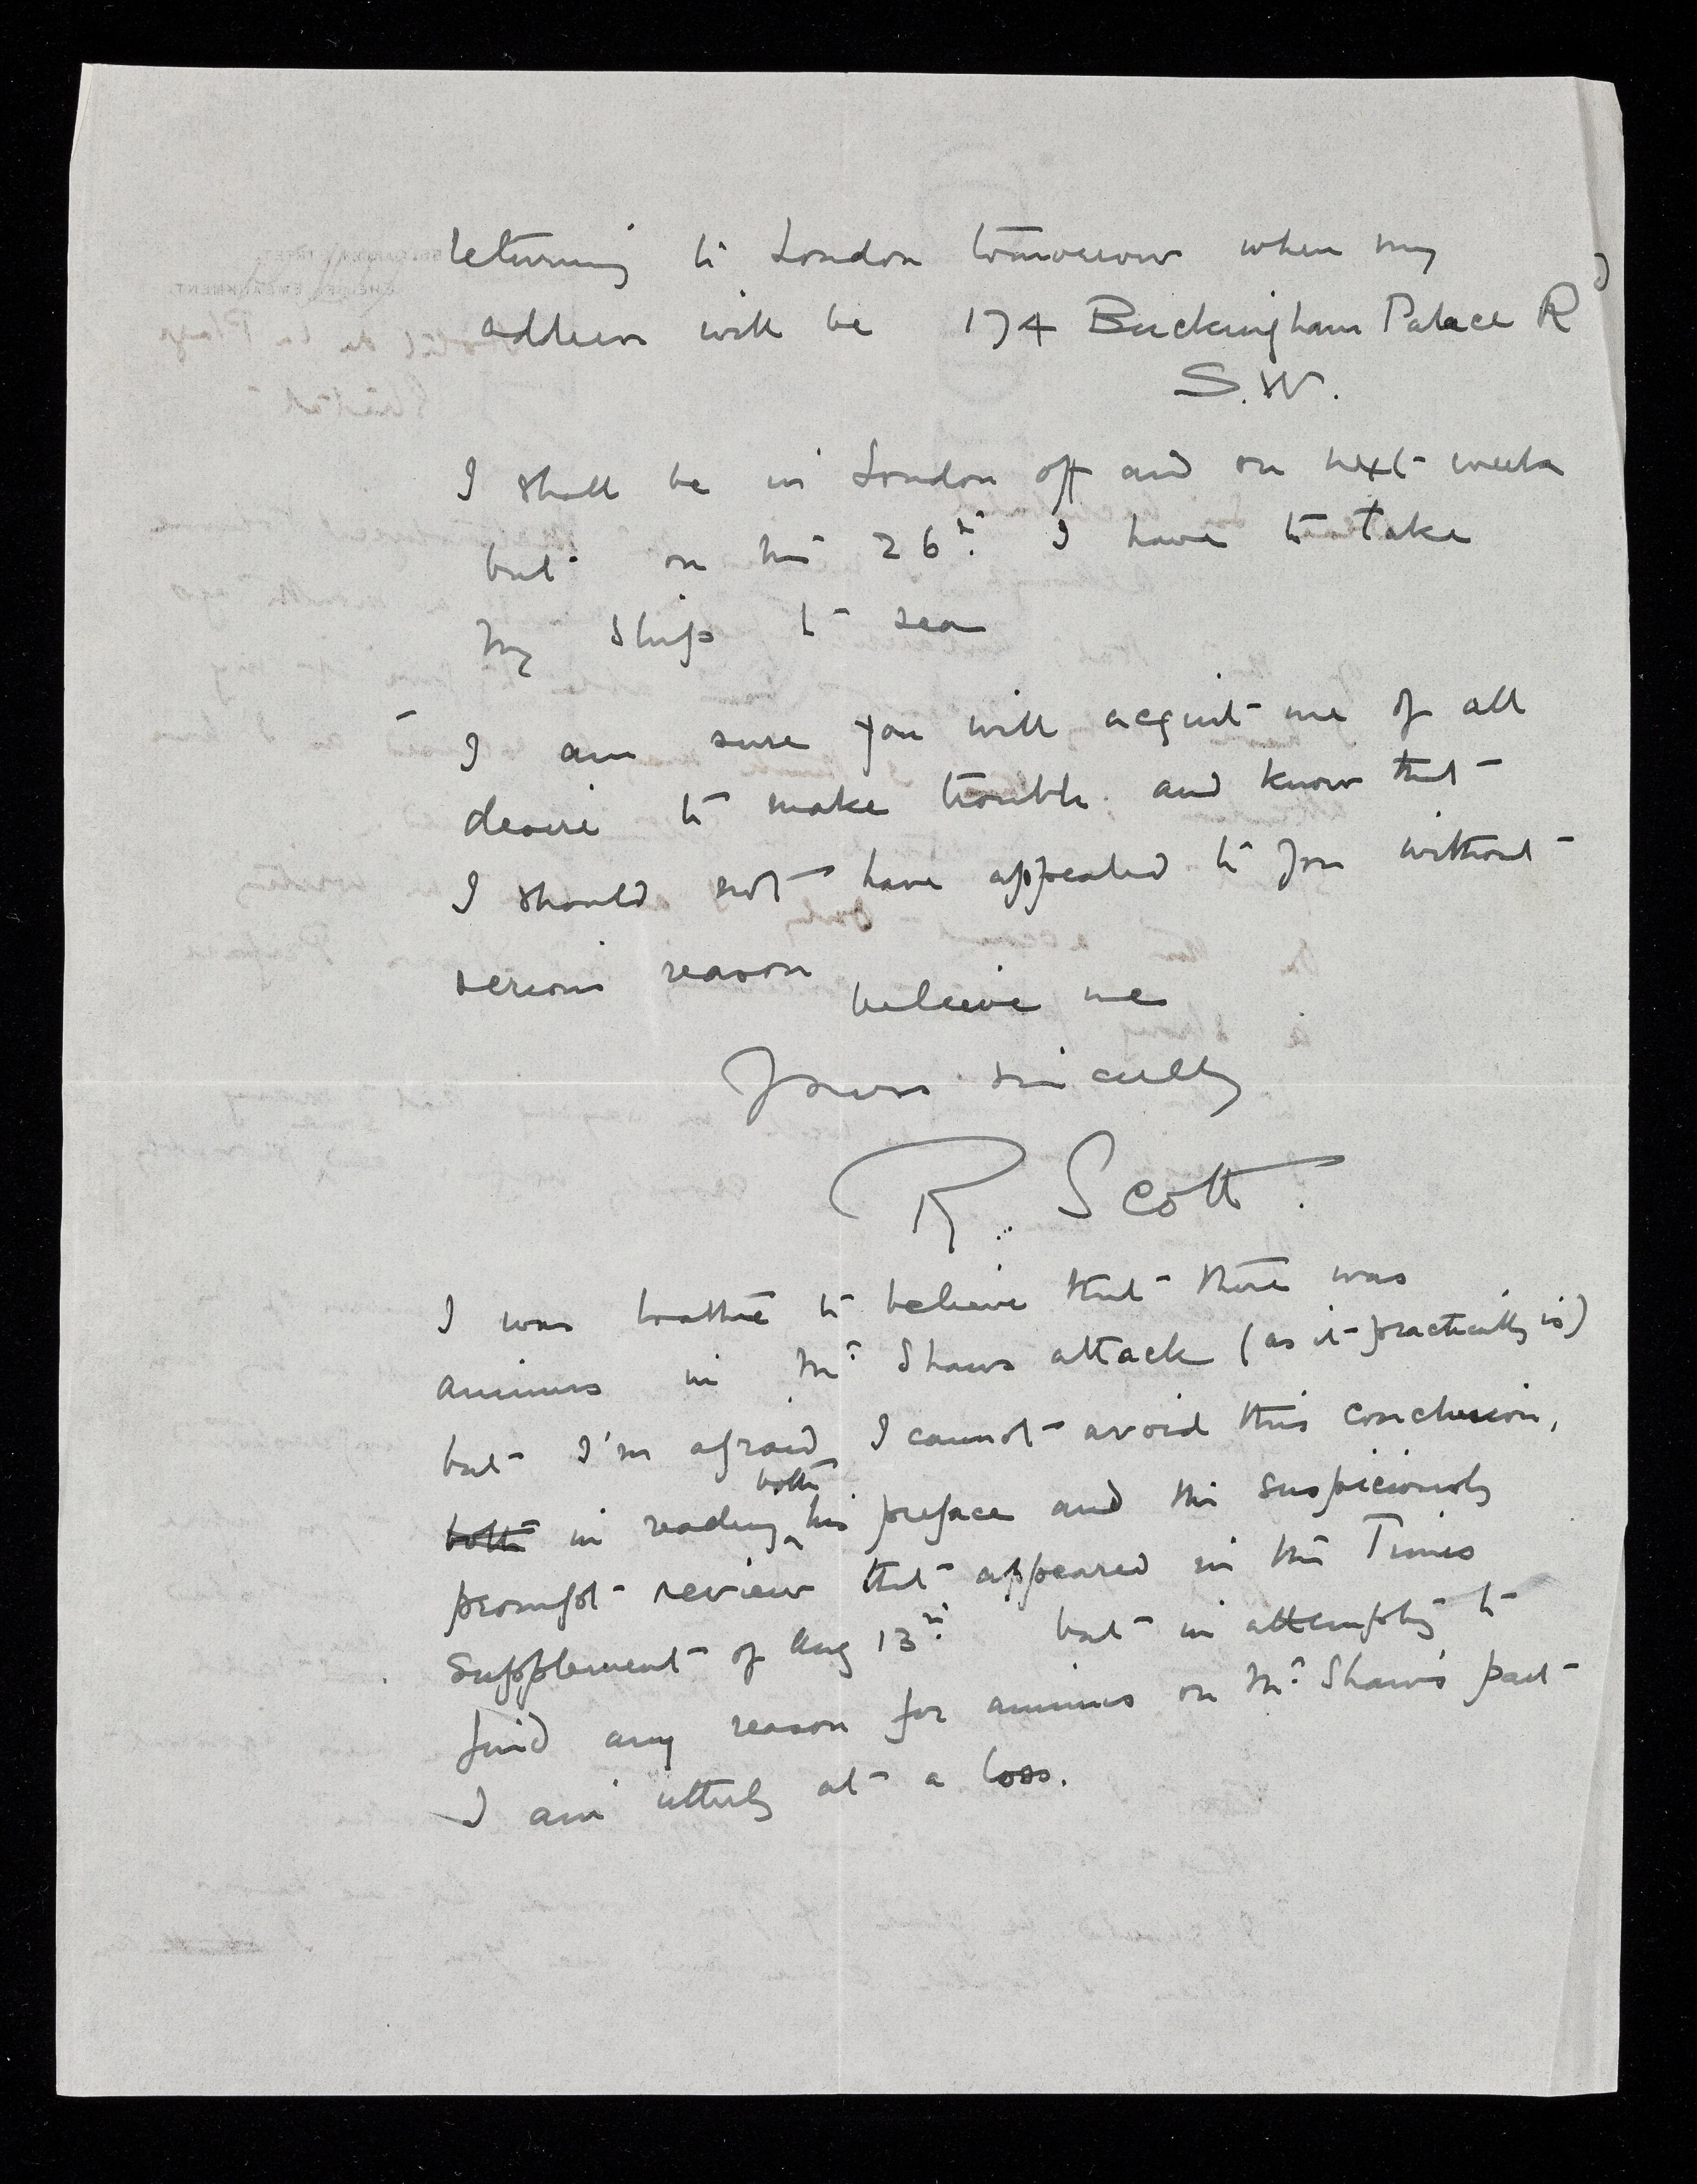 returning to London tomorrow when my
address will be 174 Buckingham Palace Rd
S.W.
I shall be in London off and on next week
but on the 26th. I have to take
my ship to sea
I am sure you will acquit me of all
desire to make trouble. and know that
I should not have appealed to you without
serious reason
believe me
Yours sincerely
R. Scott.
I was loathe to believe that there was
animus in Mr Shaws attack (as it practically is)
but I'm afraid I cannot avoid this conclusion,
both
both in reading his preface and the suspiciously
prompt review that appeared in the Times
Supplement of Aug 13th. but in attempting to
find any reason for animus on Mr Shaw's part
I am utterly at a loss.